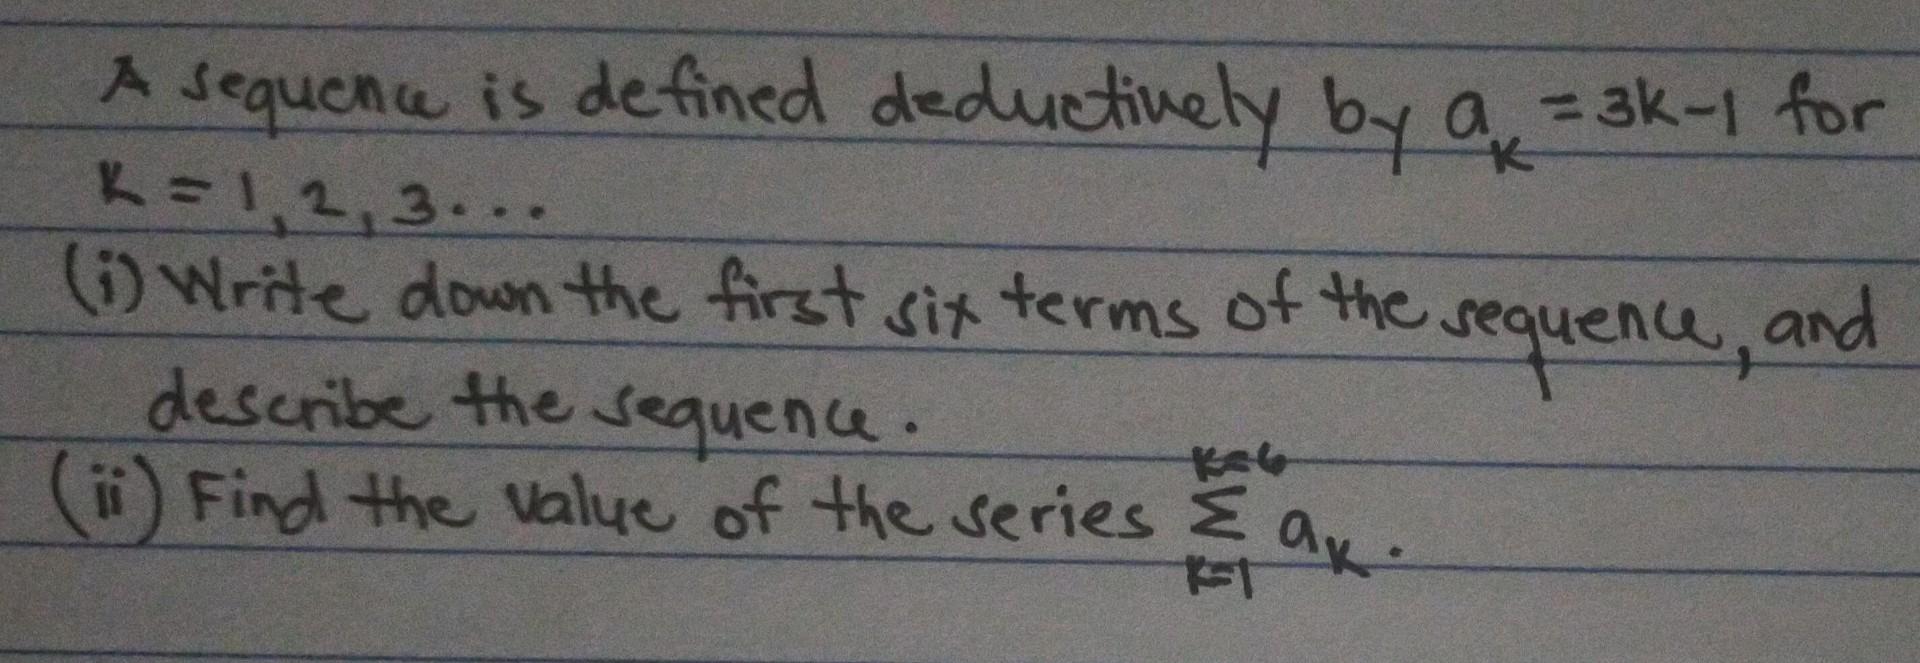 A sequence is defined deductively by aₖ = 3k-1 for
K = 1, 2, 3...
(i) Write down the first six terms of the sequence, and
describe the sequence.
(ii) Find the value of the series Σ_{K=1}^{K=6} aₖ.